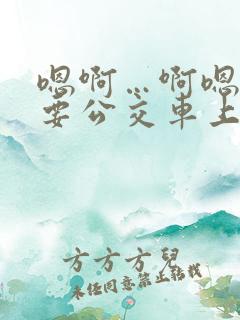 嗯啊…啊嗯
要公交車上
方方方兒
未经同意禁止转载